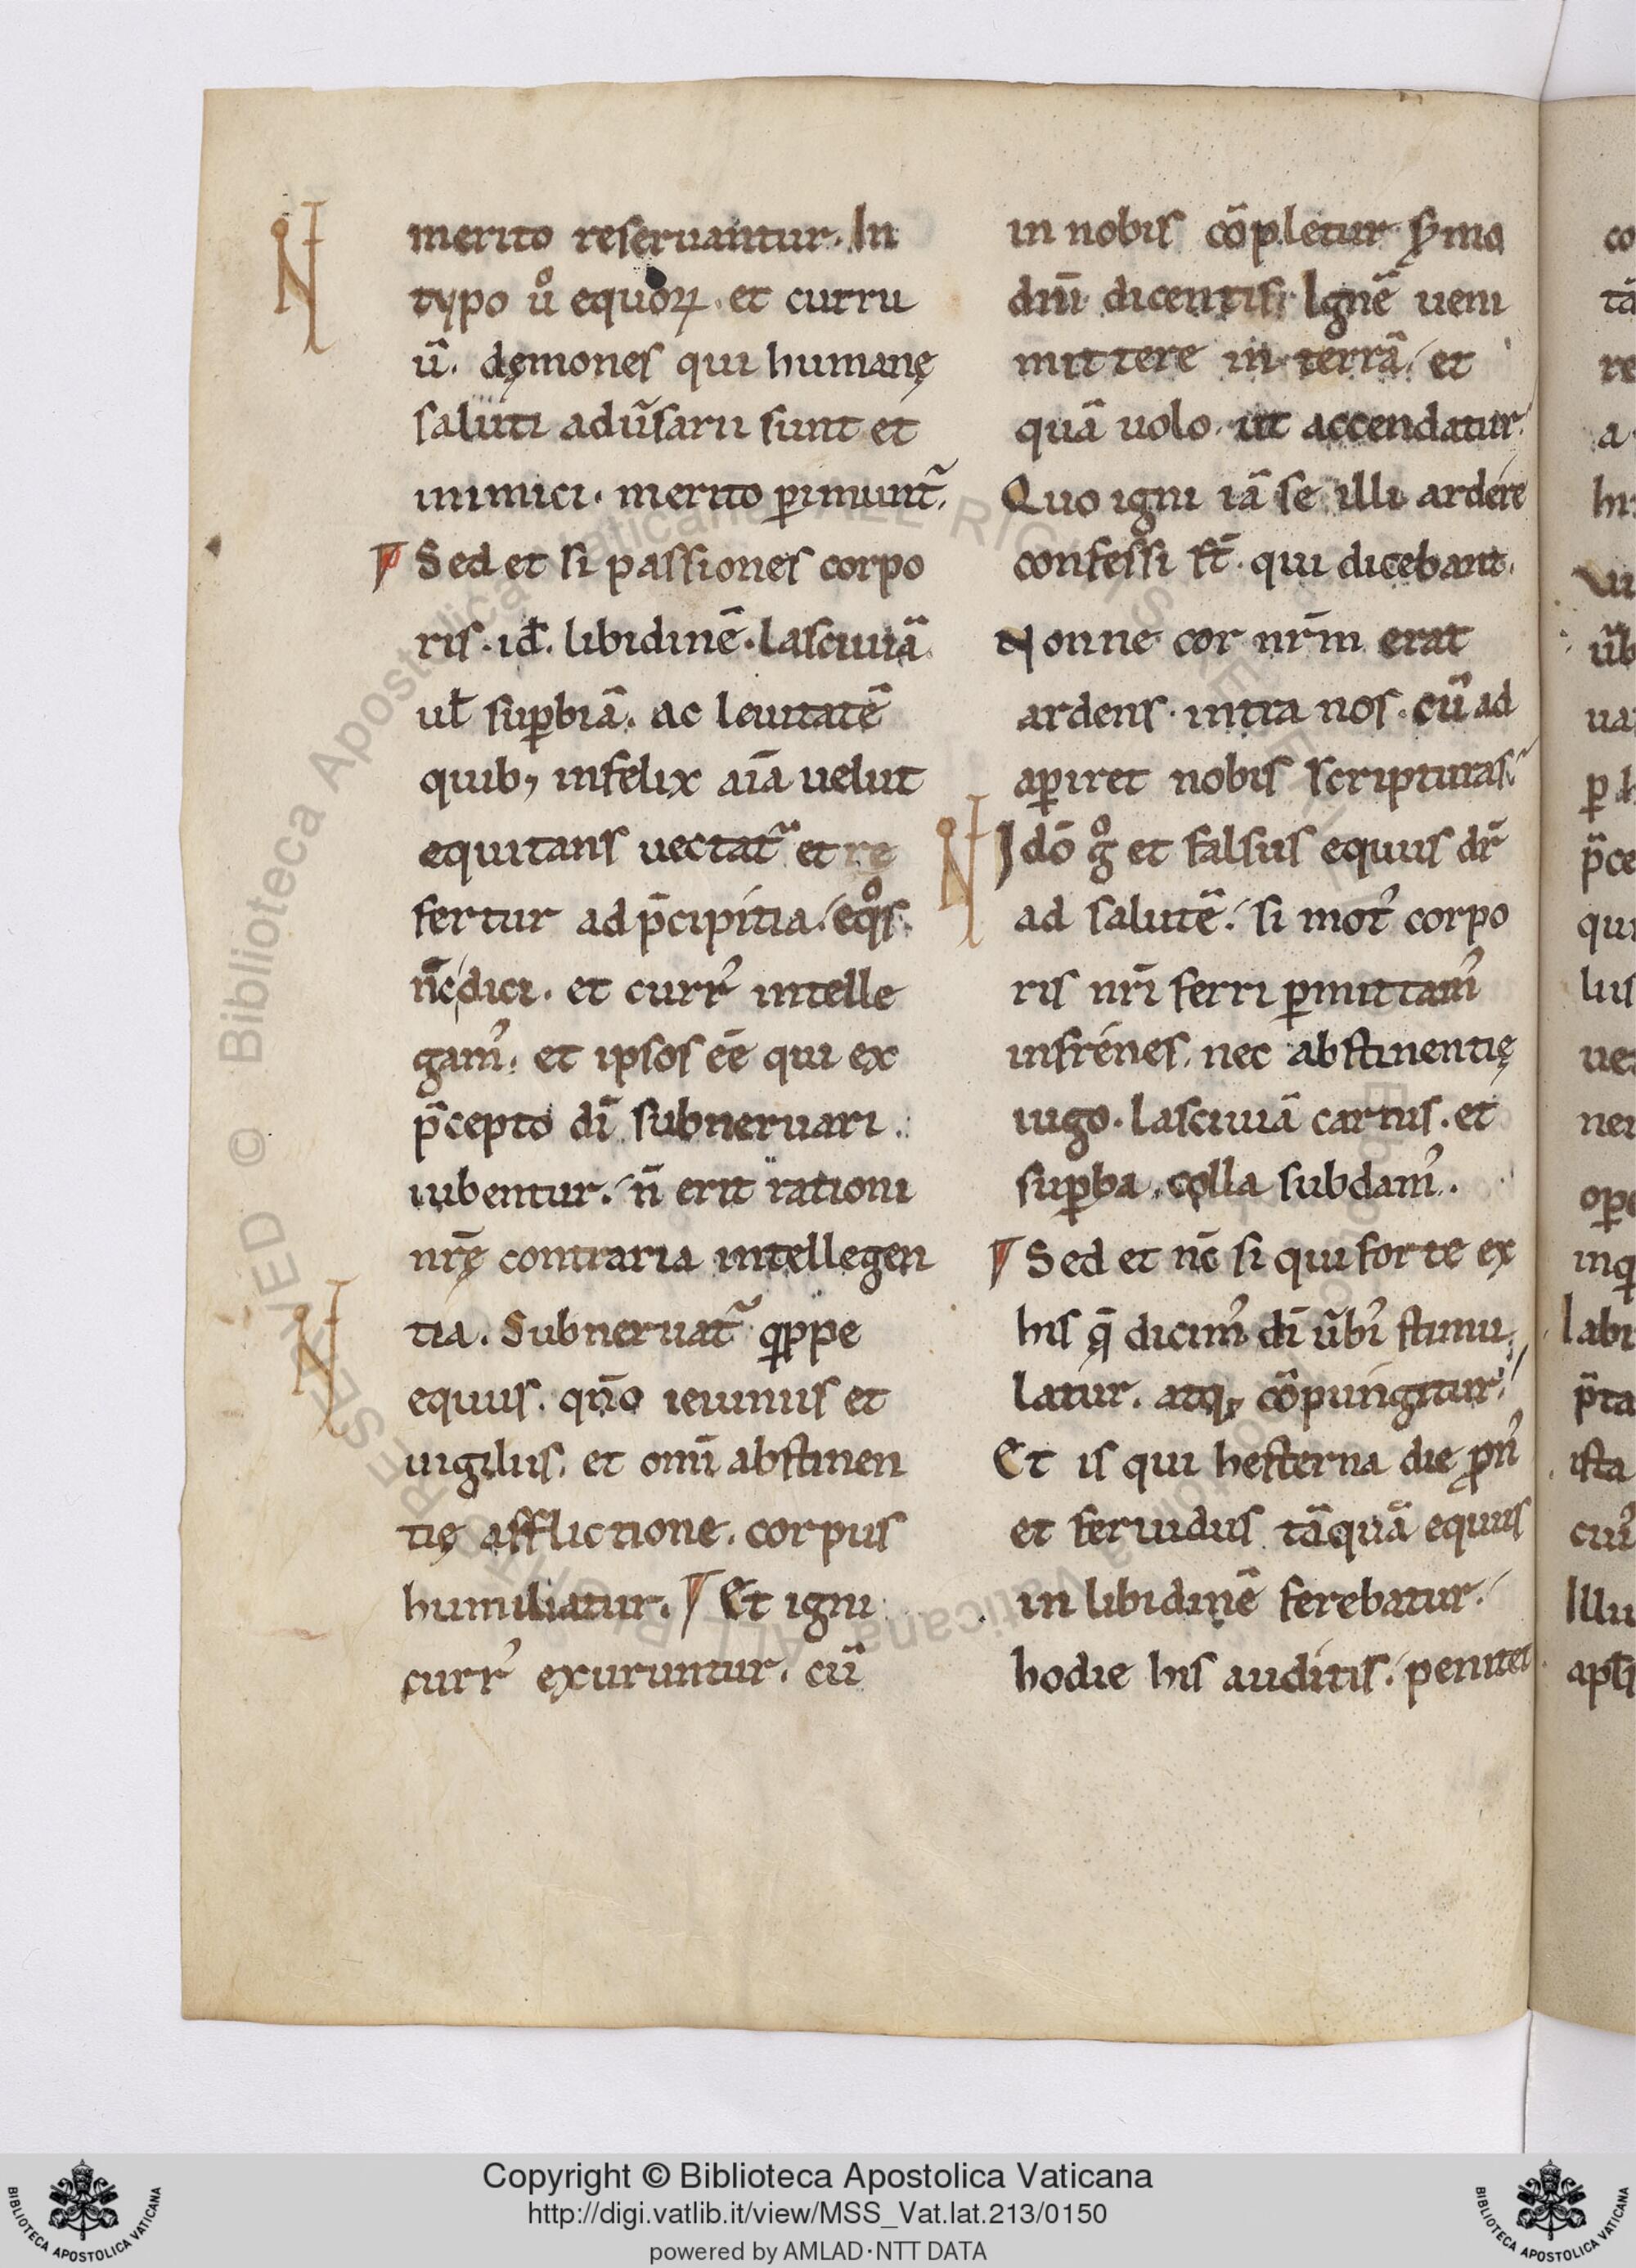 N
merito reseruantur. In
typo uͦ equoꝝ. et curru
ũ. dęmones qui humanę
saluti adũsarii sunt et
inimici. merito ꝑimunt᷑.
¶ Sed et si passiones corpo
ris. id̄. libidinē. lasciuiā.
uł suꝑbiā. ac leuitatē
quib; infelix aīa uelut
equitans uectat᷑ et re
fertur ad p̄cipitia. eqͦs.
nc̄ dici. et curr᾽ intelle
gam᾽. et ipsos eē qui ex
p̄cepto dī subneruari.
iubentur. n̄ erit rationi
nrę̄ contraria intellegen
N
tia. Subneruat᷑ qͥppe
equus. qn̄o ieiuniis et
uigiliis. et omī abstinen
tię afflictione. corpus
humiliatur. ¶ Et igni
curr᾽ exuruntur. cū
in nobis cōpletur sẏmo
dnī dicentis. Ignē ueni
mittere in terrā. et
quā uolo. ut accendatur.
Quo igni iā se illi ardere
confessi st̄. qui dicebant.
Nonne cor nr̄m erat
ardens. intra nos. cū ad
aꝑiret nobis scripturas.
N
Idō gͦ et falsus equus dr̄
ad salutē. si mot᾽ corpo
ris nrī ferri ꝑmittam᾽
infrénes. nec abstinentię
iugo. lasciuiā carnis. et
suꝑba. colla subdam᾽.
¶ Sed et nc̄ si qui forte ex
his q̄ dicim᾽ dī ũbi᾽ stimu
latur. atq; cōpungitur.
Et is qui hesterna die ꝓn᾽
et feruidus tāquā equus
in libidinē ferebatur.
hodie his auditis. penitet
co
tā
re
a
hi
ũb
ua
ꝑ h
p̄ce
qui
lus
ue
ner
oꝑ
inq
labi
p̄ta
ista
cui᾽
Illu
apłi
© Biblioteca Apostolica Vaticana ALL RIGHTS RESERVED
Copyright © Biblioteca Apostolica Vaticana
http://digi.vatlib.it/view/MSS_Vat.lat.213/0150
powered by AMLAD·NTT DATA
BIBLIOTECA APOSTOLICA VATICANA
BIBLIOTECA APOSTOLICA VATICANA